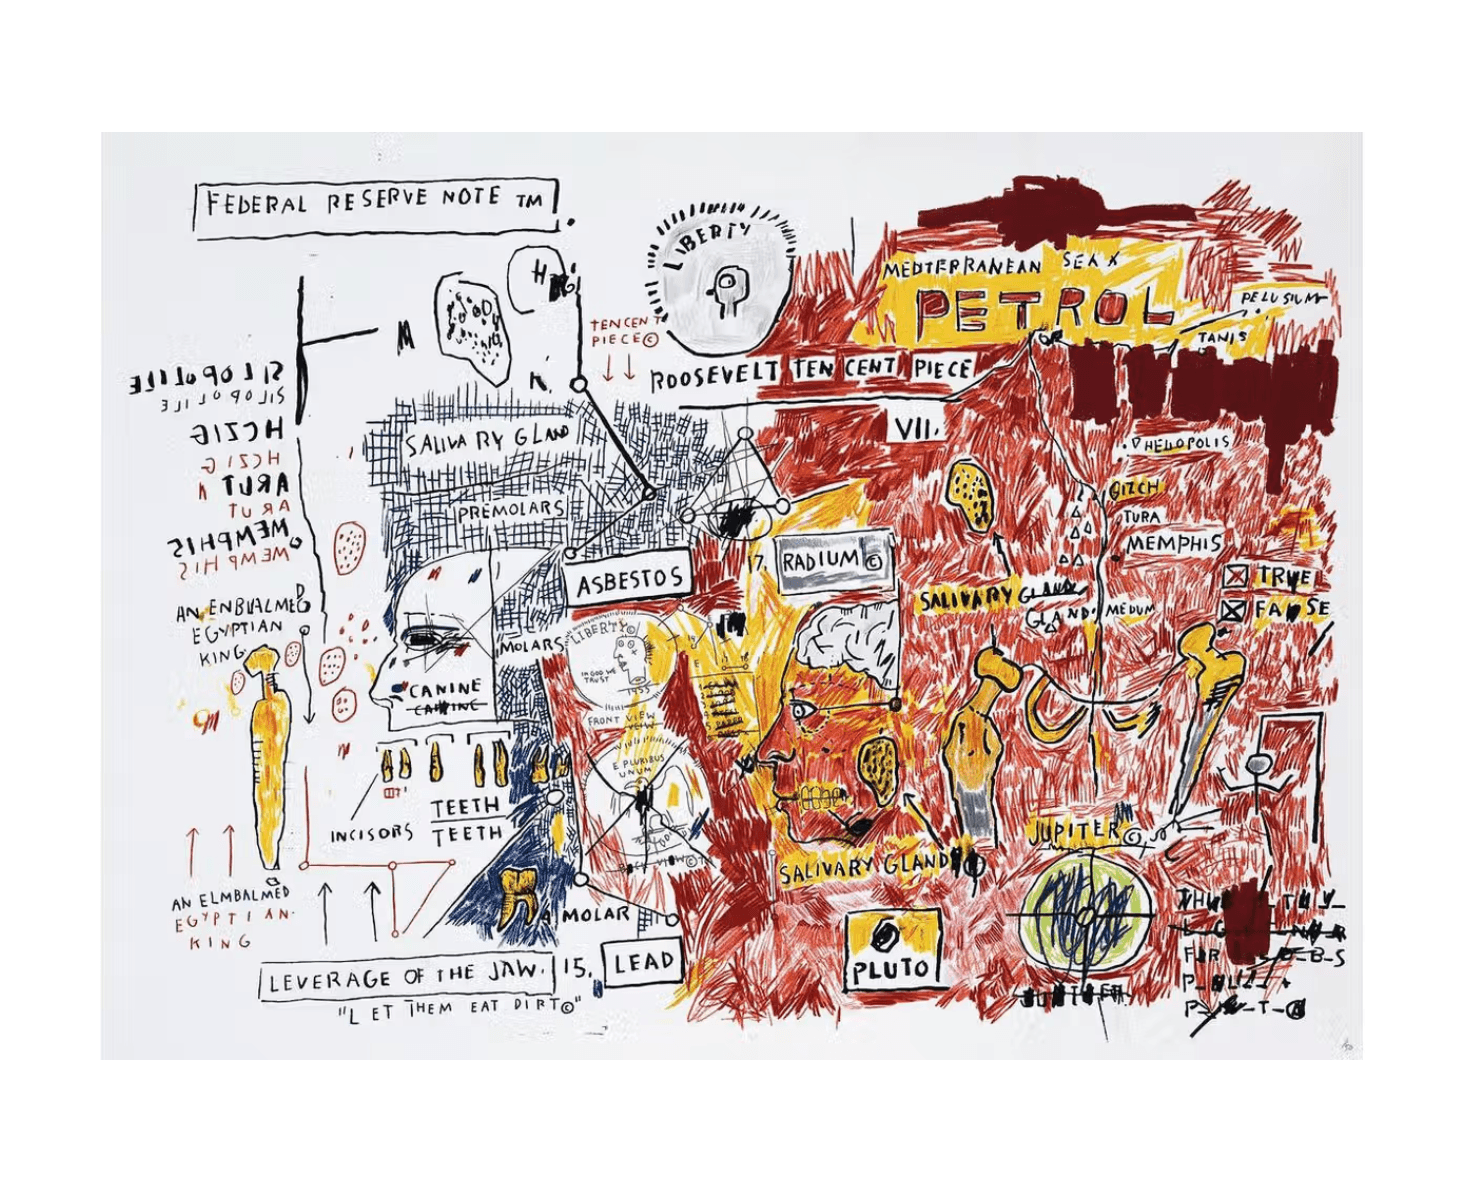 FEDERAL RESERVE NOTE TM
LIBERTY
TEN CENT
PIECE©
MEDTERRANEAN SEA X
PETROL
PELUSIUM
TANIS
ROOSEVELT TEN CENT PIECE
VII.
SILOPOLILE
SILOPOLILE
HCZIG
HCZIG
ARUT
ARUT
MEMPHIS
MEMPHIS
SALIVARY GLAND
PREMOLARS
HELIOPOLIS
GIZCH
TURA
MEMPHIS
MEDUM
ASBESTOS
17.
RADIUM ©
TRUE
FALSE
SALIVARY GLAND
GLAND
AN ENBVALMED
EGYPTIAN
KING
MOLARS
LIBERTY©
IN GOD WE
TRUST
1955
CANINE
CANINE
FRONT VIEW
VEIW
E PLURIBUS
UNUM
BACK VIEW©
TEETH
INCISORS
TEETH
SALIVARY GLAND
JUPITER©
AN ELMBALMED
EGYPTIAN
KING
MOLAR
LEVERAGE OF THE JAW.
15.
LEAD
PLUTO
"LET THEM EAT DIRT©"
JUPITER